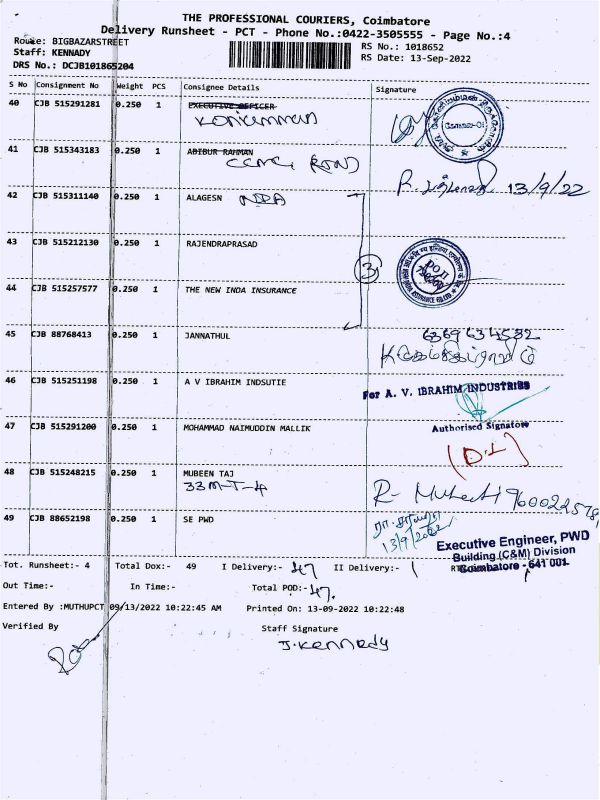 THE PROFESSIONAL COURIERS, Coimbatore
Delivery Runsheet - PCT - Phone No.:0422-3505555 - Page No.:4
Route: BIGBAZARSTREET
Staff: KENNADY
DRS No.: DCJB101865204
RS No.: 1018652
RS Date: 13-Sep-2022
S No Consignment No Weight PCS Consignee Details Signature
40 CJB 515291281 0.250 1 EXECUTIVE OFFICER
41 CJB 515343183 0.250 1 ABIBUR RAHMAN
13/9/22
42 CJB 515311140 0.250 1 ALAGESN
43 CJB 515212130 0.250 1 RAJENDRAPRASAD
3
44 CJB 515257577 0.250 1 THE NEW INDA INSURANCE
45 CJB 88768413 0.250 1 JANNATHUL
6369634532
46 CJB 515251198 0.250 1 A V IBRAHIM INDSUTIE
For A. V. IBRAHIM INDUSTRIES
Authorised Signatore
47 CJB 515291200 0.250 1 MOHAMMAD NAIMUDDIN MALLIK
48 CJB 515248215 0.250 1 MUBEEN TAJ
33M-T-4
49 CJB 88652198 0.250 1 SE PWD
13/9/2022
Executive Engineer, PWD
Building (C&M) Division
Coimbatore - 641 001.
Tot. Runsheet:- 4 Total Dox:- 49 I Delivery:- 47 II Delivery:- 1
Out Time:- In Time:- Total POD:- 47
Entered By :MUTHUPCT 09/13/2022 10:22:45 AM Printed On: 13-09-2022 10:22:48
Verified By Staff Signature
J. Kennedy